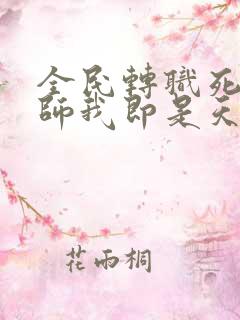 全民轉職死
師我即是天
花雨桐